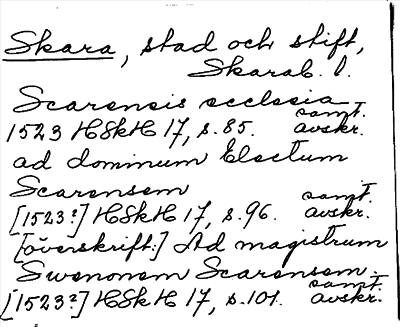 Skara, stad och stift,
Skarab. l.
Scarensis ecclesia
1523 HSkH 17, s. 85. samt. avskr.
ad dominum Electum
Scarensem
[1523?] HSkH 17, s. 96. samt. avskr.
[överskrift:] Ad magistrum
Swenonem Scarensem.
[1523?] HSkH 17, s. 101. samt. avskr.